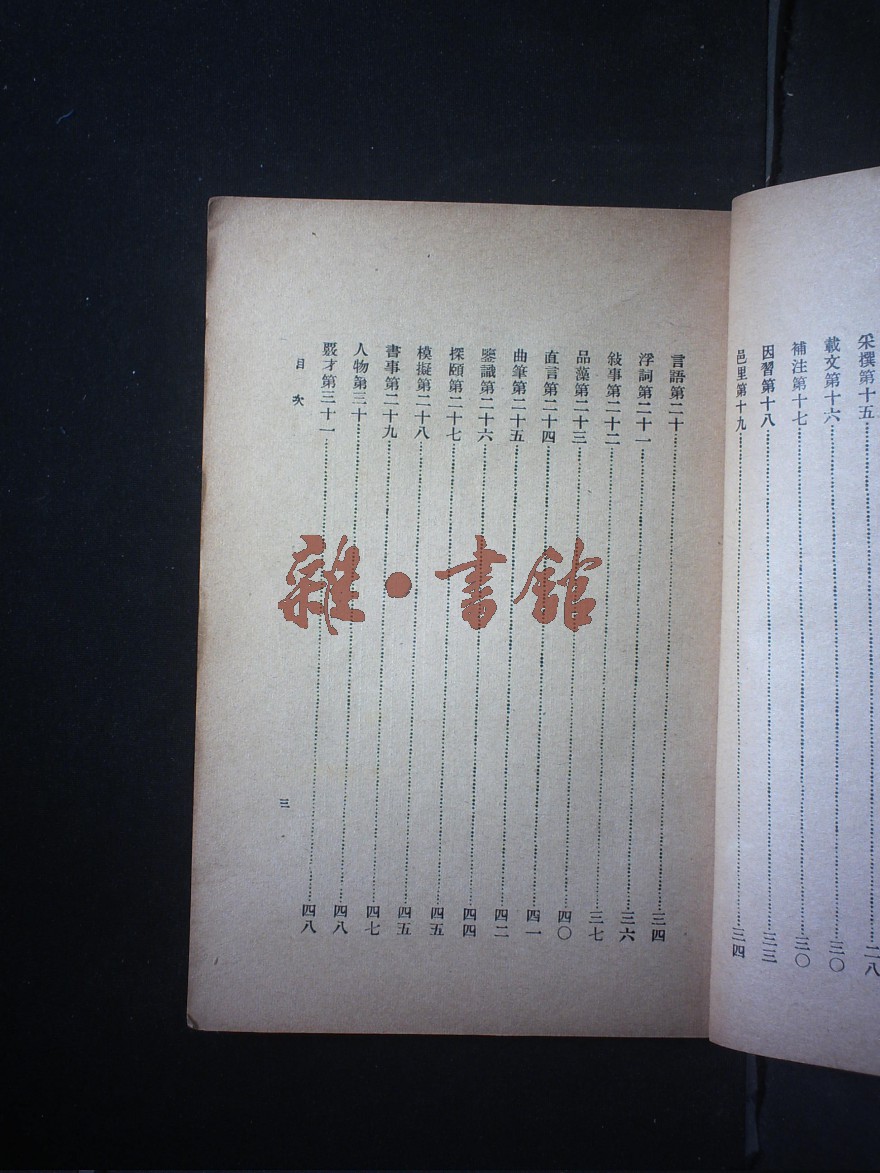 采撰第十五……二八
載文第十六……三〇
補注第十七……三〇
因習第十八……三三
邑里第十九……三四
言語第二十……三四
浮詞第二十一……三六
敍事第二十二……三七
品藻第二十三……四〇
直言第二十四……四一
曲筆第二十五……四二
鑒識第二十六……四四
探賾第二十七……四五
模擬第二十八……四五
書事第二十九……四七
人物第三十……四八
覈才第三十一……四八
目次
三
雜·書館